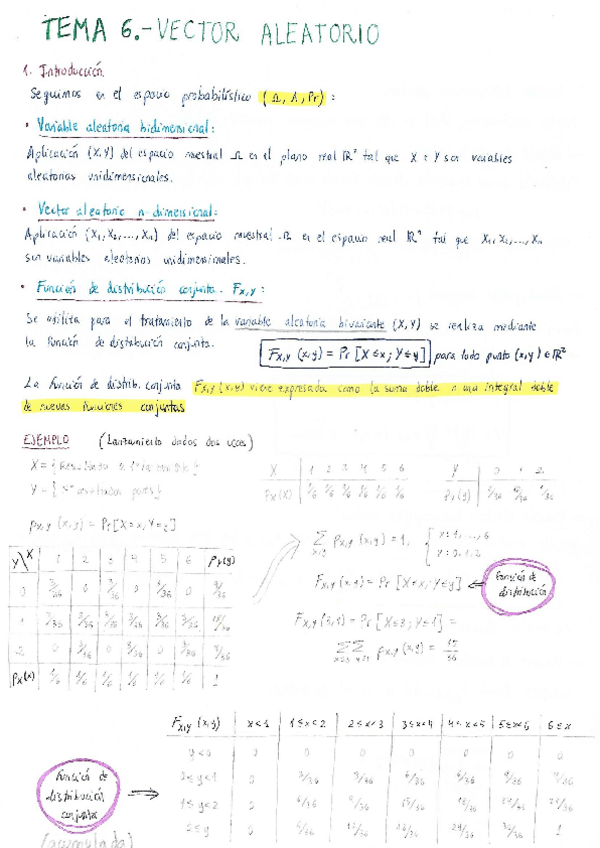 TEMA 6.- VECTOR ALEATORIO
1. Introducción
Seguimos en el espacio probabilístico (Ω, A, Pr) :
• Variable aleatoria bidimensional:
Aplicación (X,Y) del espacio muestral Ω en el plano real ℝ² tal que X e Y son variables
aleatorias unidimensionales.
• Vector aleatorio n-dimensional:
Aplicación (X₁, X₂, ..., Xn) del espacio muestral Ω en el espacio real ℝⁿ tal que X₁, X₂, ..., Xn
son variables aleatorias unidimensionales.
• Función de distribución conjunta. Fx,y :
Se utiliza para el tratamiento de la variable aleatoria bivariante (X,Y) se realiza mediante
la función de distribución conjunta. Fx,y (x,y) = Pr [X ≤ x ; Y ≤ y] para todo punto (x,y) ∈ ℝ²
La función de distrib. conjunta Fx,y (x,y) viene expresada como la suma doble o una integral doble
de nuevas funciones conjuntas
EJEMPLO (Lanzamiento dados dos veces)
X 1 2 3 4 5 6
Y 0 1 2
px(x) 1/6 1/6 1/6 1/6 1/6 1/6
px,y (x,y) = Pr[X=x, Y=y]
Σ px,y (x,y) = 1, { x: 1, ..., 6
y: 0, 1, 2
Y\X 1 2 3 4 5 6 py(y)
0 3/36 0 3/36 0 3/36 0 9/36
1 3/36 3/36 3/36 3/36 3/36 3/36 18/36
2 0 3/36 0 3/36 0 3/36 9/36
px(x) 1/6 1/6 1/6 1/6 1/6 1/6 1
Fx,y (x,y) = Pr [X≤x, Y≤y]
Función de
distribución
Fx,y (3,1) = Pr [X≤3; Y≤1] =
ΣΣ px,y (x,y) = 15/36
Fx,y (x,y) x<1 1≤x<2 2≤x<3 3≤x<4 4≤x<5 5≤x<6 6≤x
y<0 0 0 0 0 0 0 0
0≤y<1 0 3/36 3/36 6/36 6/36 9/36 9/36
1≤y<2 0 6/36 9/36 15/36 18/36 24/36
2≤y 0 6/36 12/36 18/36 24/36 30/36 1
Función de
distribución
conjunta
(acumulada)